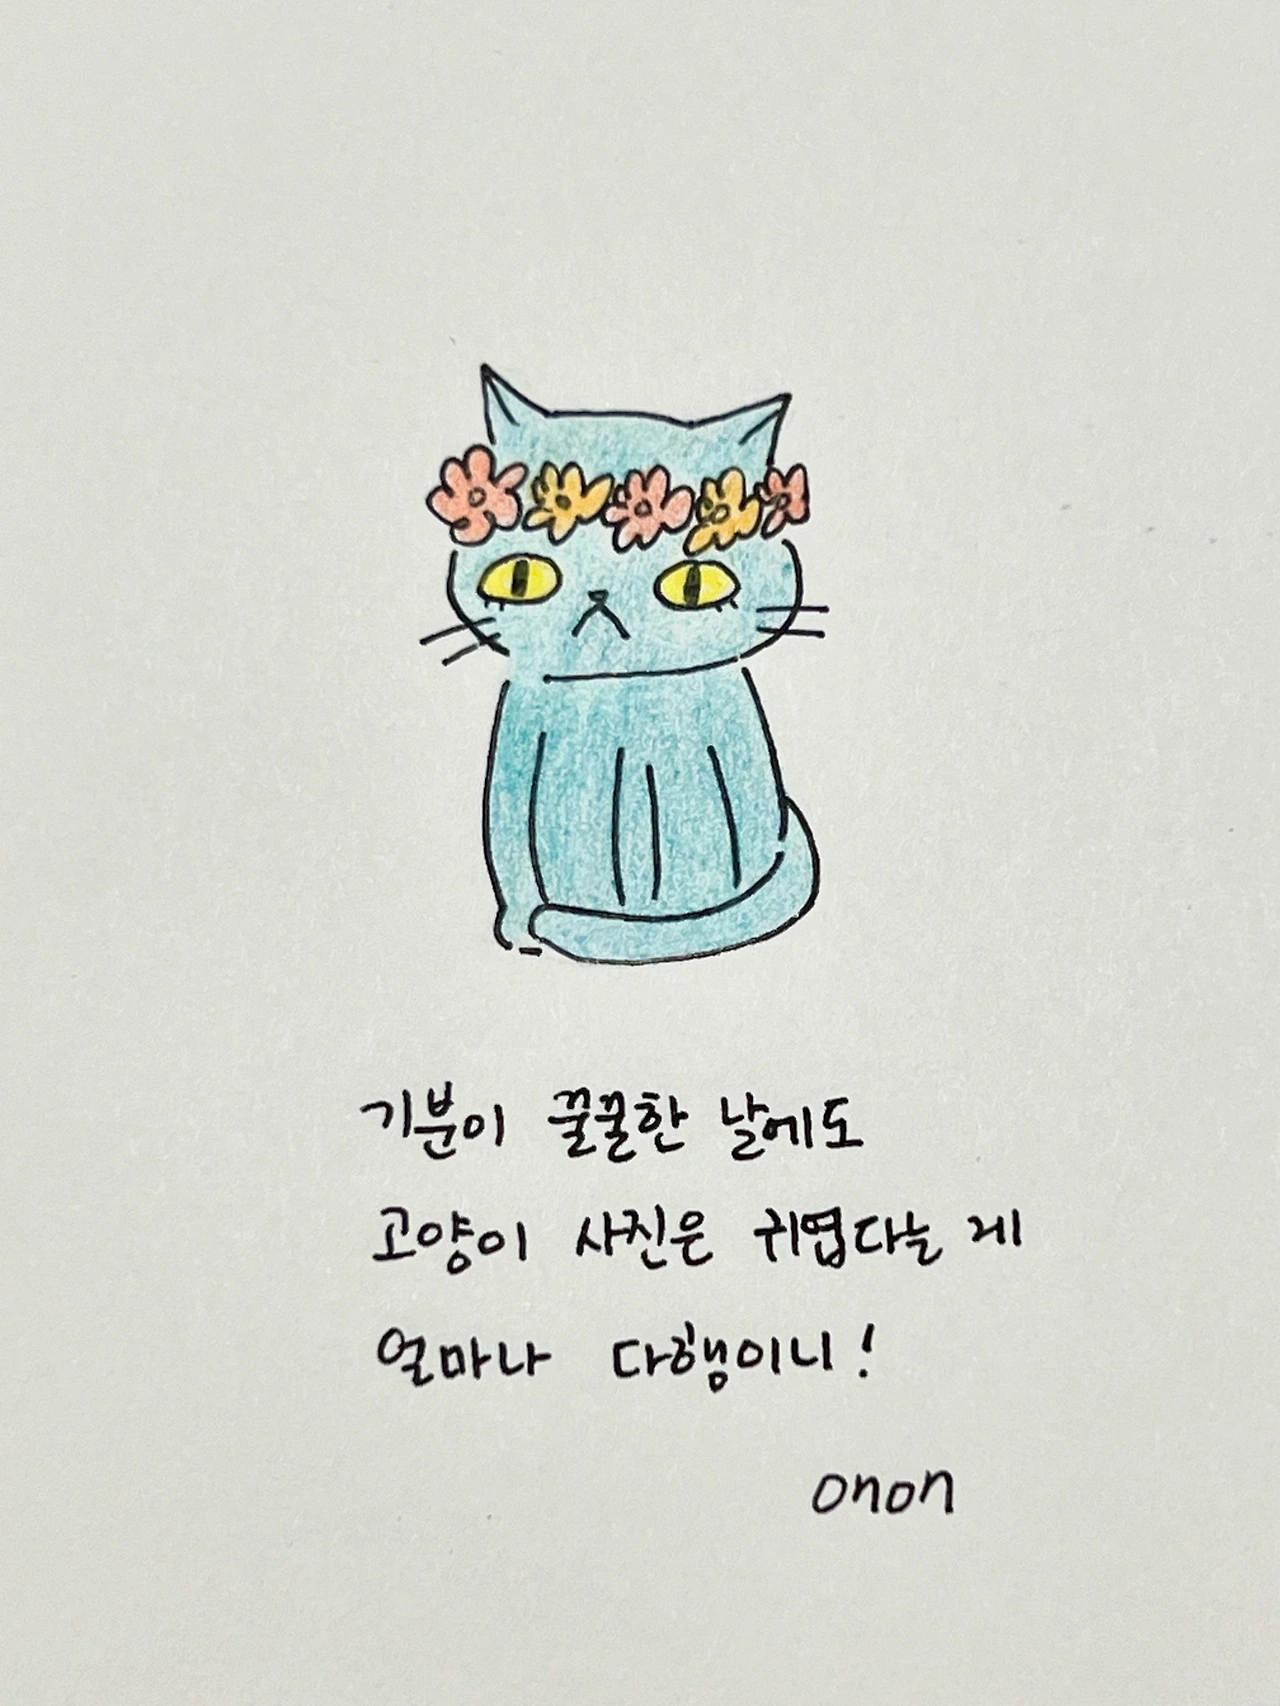 기분이 꿀꿀한 날에도
고양이 사진은 귀엽다는 게
얼마나 다행이니!
onon